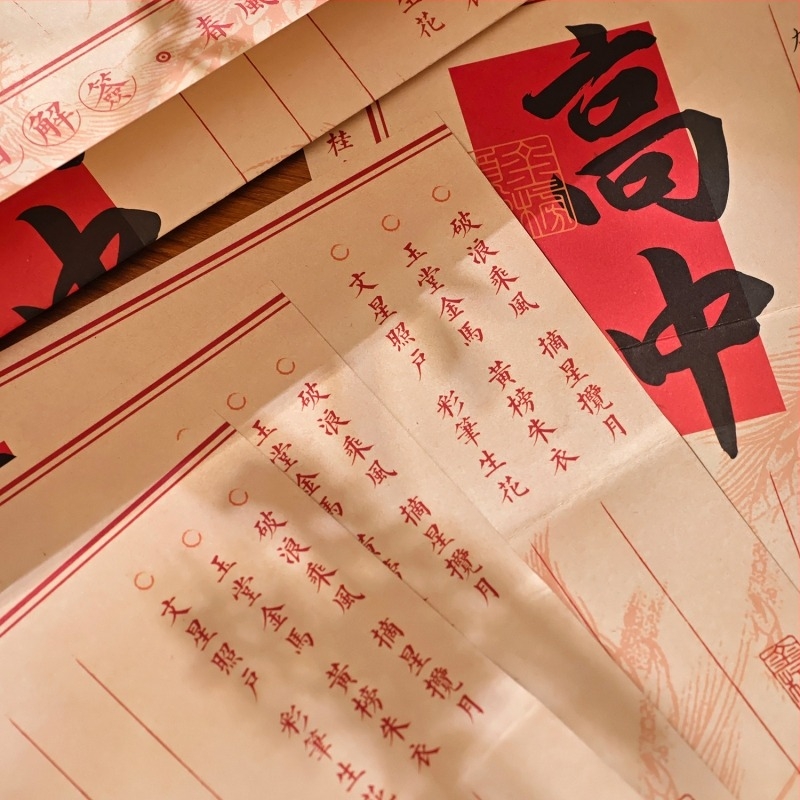 春風
解簽
花
桂
高中
中
破浪乘風 摘星攬月
玉堂金馬 黃榜朱衣
文星照戶 彩筆生花
破浪乘風 摘星攬月
玉堂金馬
破浪乘風 摘星攬月
玉堂金馬 黃榜朱衣
文星照戶 彩筆生花